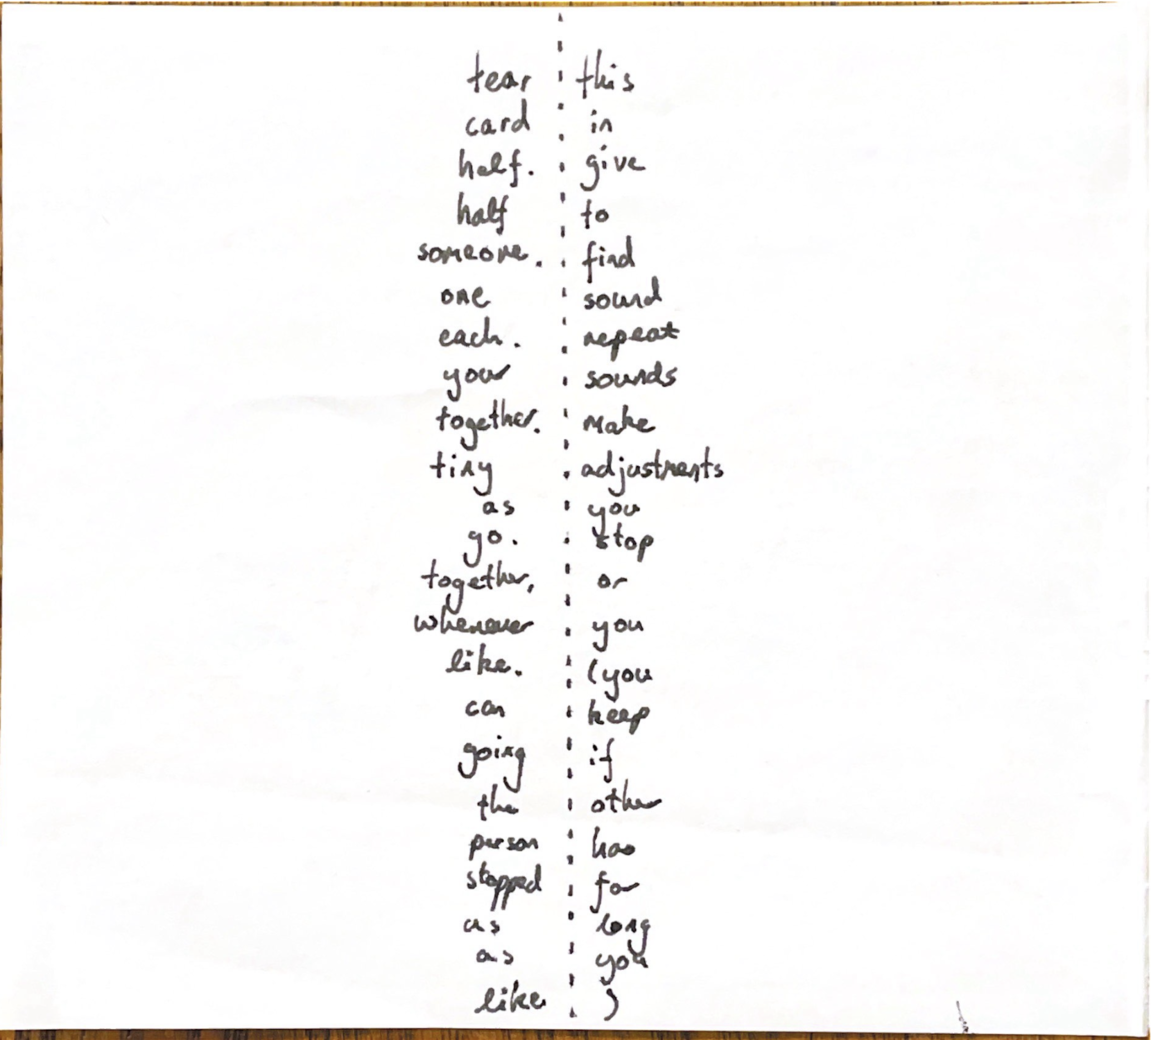 tear this
card in
half. give
half to
someone. find
one sound
each. repeat
your sounds
together. make
tiny adjustments
as you
go. stop
together, or
whenever you
like. (you
can keep
going if
the other
person has
stopped for
as long
as you
like )